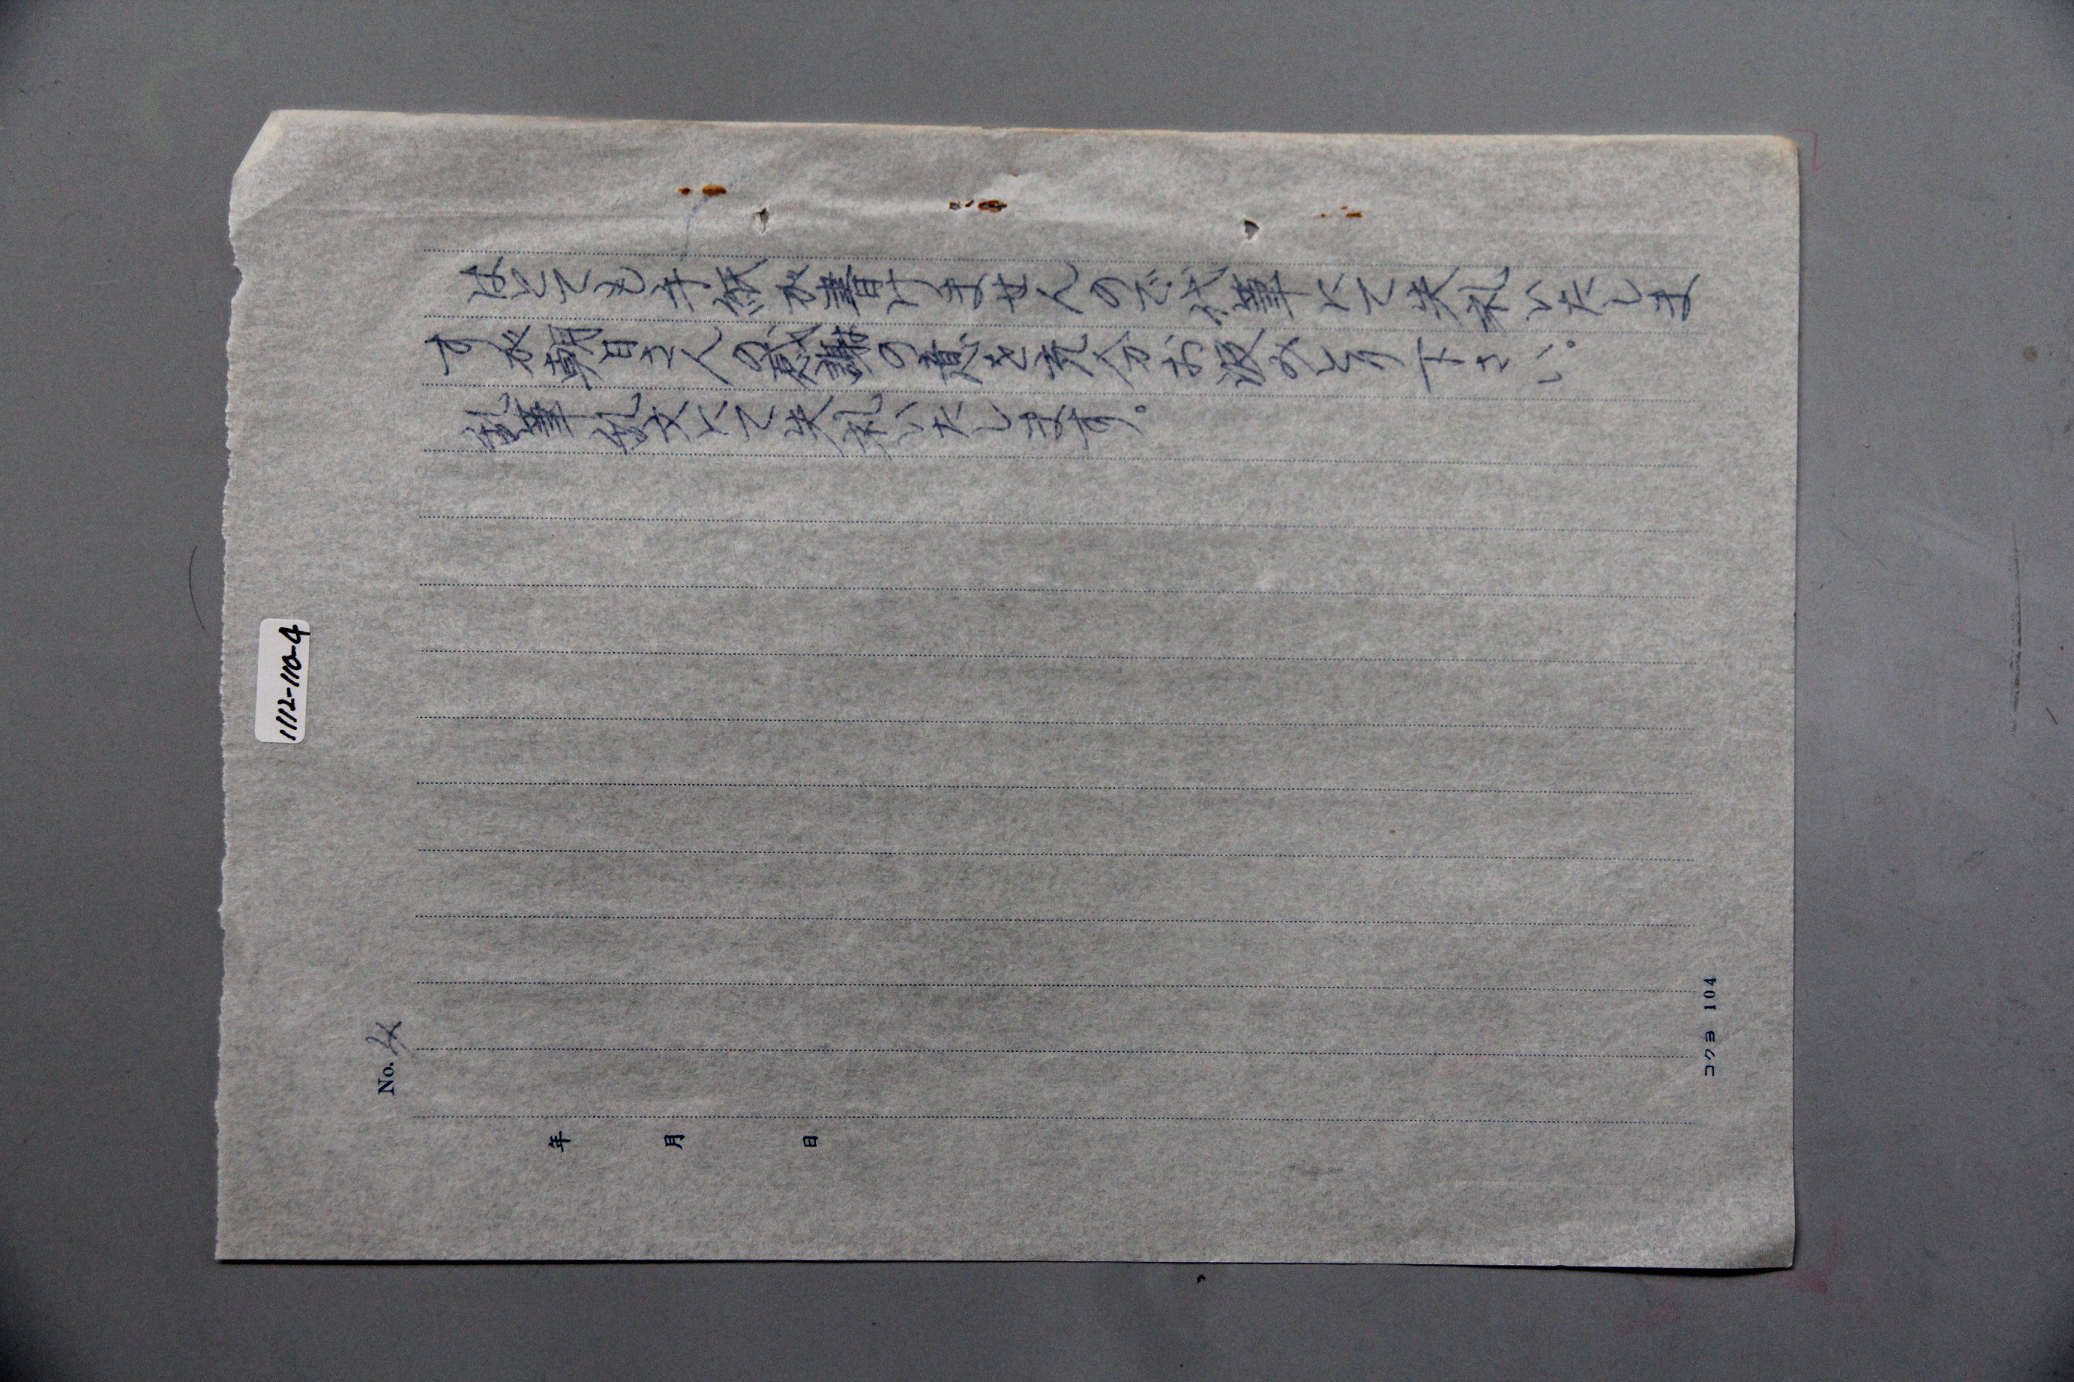 はとても手紙が書けませんので代筆にて失礼いたしま
すが朝日さんの感謝の意を充分お汲みとり下さい。
乱筆乱文にて失礼いたします。
No. 4
年 月 日
コクヨ 104
1112-110-4